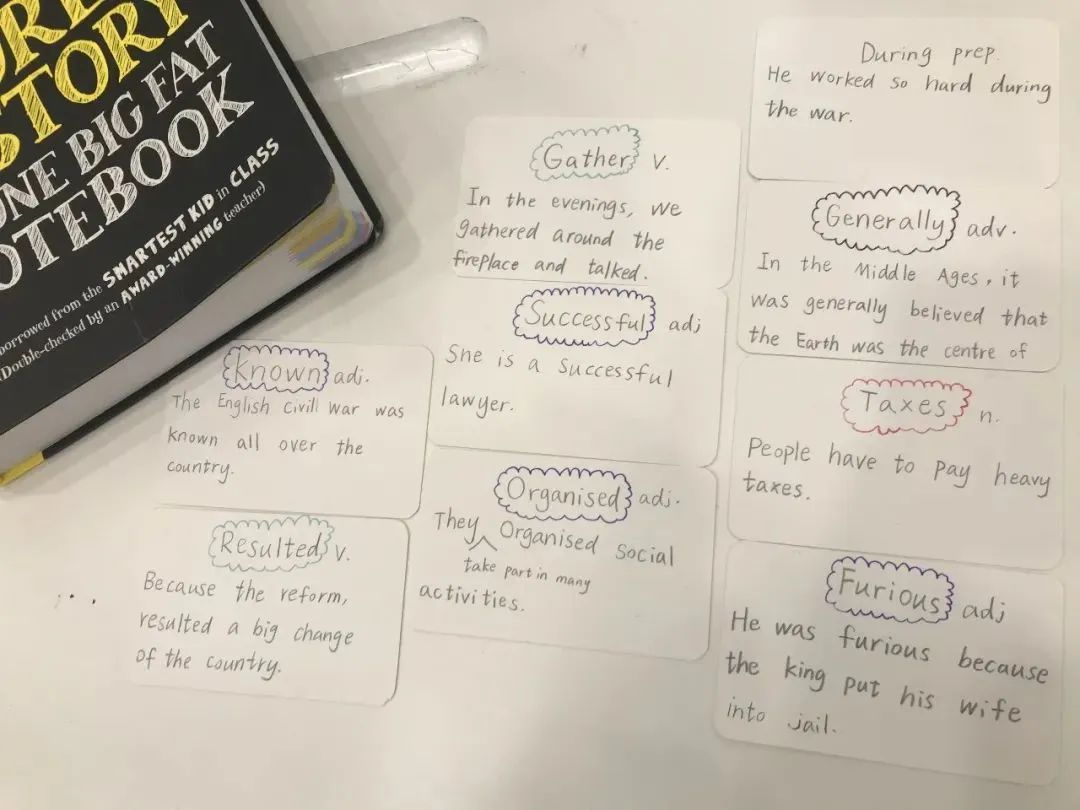 STORY
ONE BIG FAT
NOTEBOOK
borrowed from the SMARTEST KID in CLASS
(Double-checked by an AWARD-WINNING teacher)
During prep.
He worked so hard during
the war.
Gather v.
In the evenings, we
gathered around the
fireplace and talked.
Generally adv.
In the Middle Ages, it
was generally believed that
the Earth was the centre of
Successful adj
She is a successful
lawyer.
Known adj.
The English Civill War was
known all over the
country.
Taxes n.
People have to pay heavy
taxes.
Organised adj.
They Organised social
take part in many
activities.
Resulted v.
Because the reform,
resulted a big change
of the country.
Furious adj
He was furious because
the king put his wife
into jail.